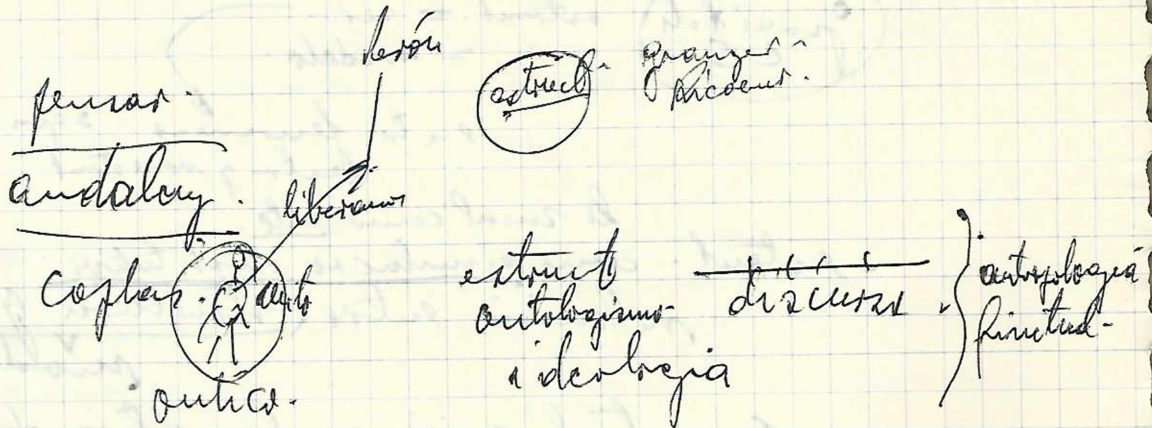 pensar.
andaluz.
coplas.
óntico.
liberamos
estruct.
Ricoeur.
estruct
ontologismo
ideología
discurso
antropología
finitud-